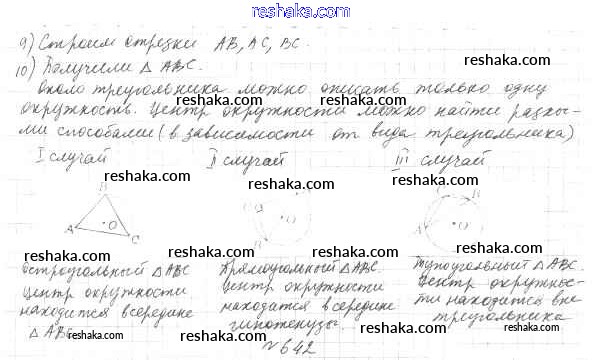 www.reshaka.com
9) Строим отрезки AB, AC, BC.
reshaka.com
10) Получили △ ABC.
reshaka.com reshaka.com
Около треугольника можно описать только одну
окружность. Центр окружности можно найти разны-
reshaka.com reshaka.com
ми способами (в зависимости от вида треугольника)
I случай II случай III случай
reshaka.com reshaka.com
B
A O C
reshaka.com reshaka.com
C O
B
O
reshaka.com reshaka.com
Остроугольный △ ABC
Центр окружности
находится в середине
△ ABC
Прямоугольный △ ABC.
Центр окружности
находится в середине
гипотенузы.
Тупоугольный △ ABC.
Центр окружнос-
ти находится вне
треугольника
reshaka.com reshaka.com
reshaka.com reshaka.com
№ 642